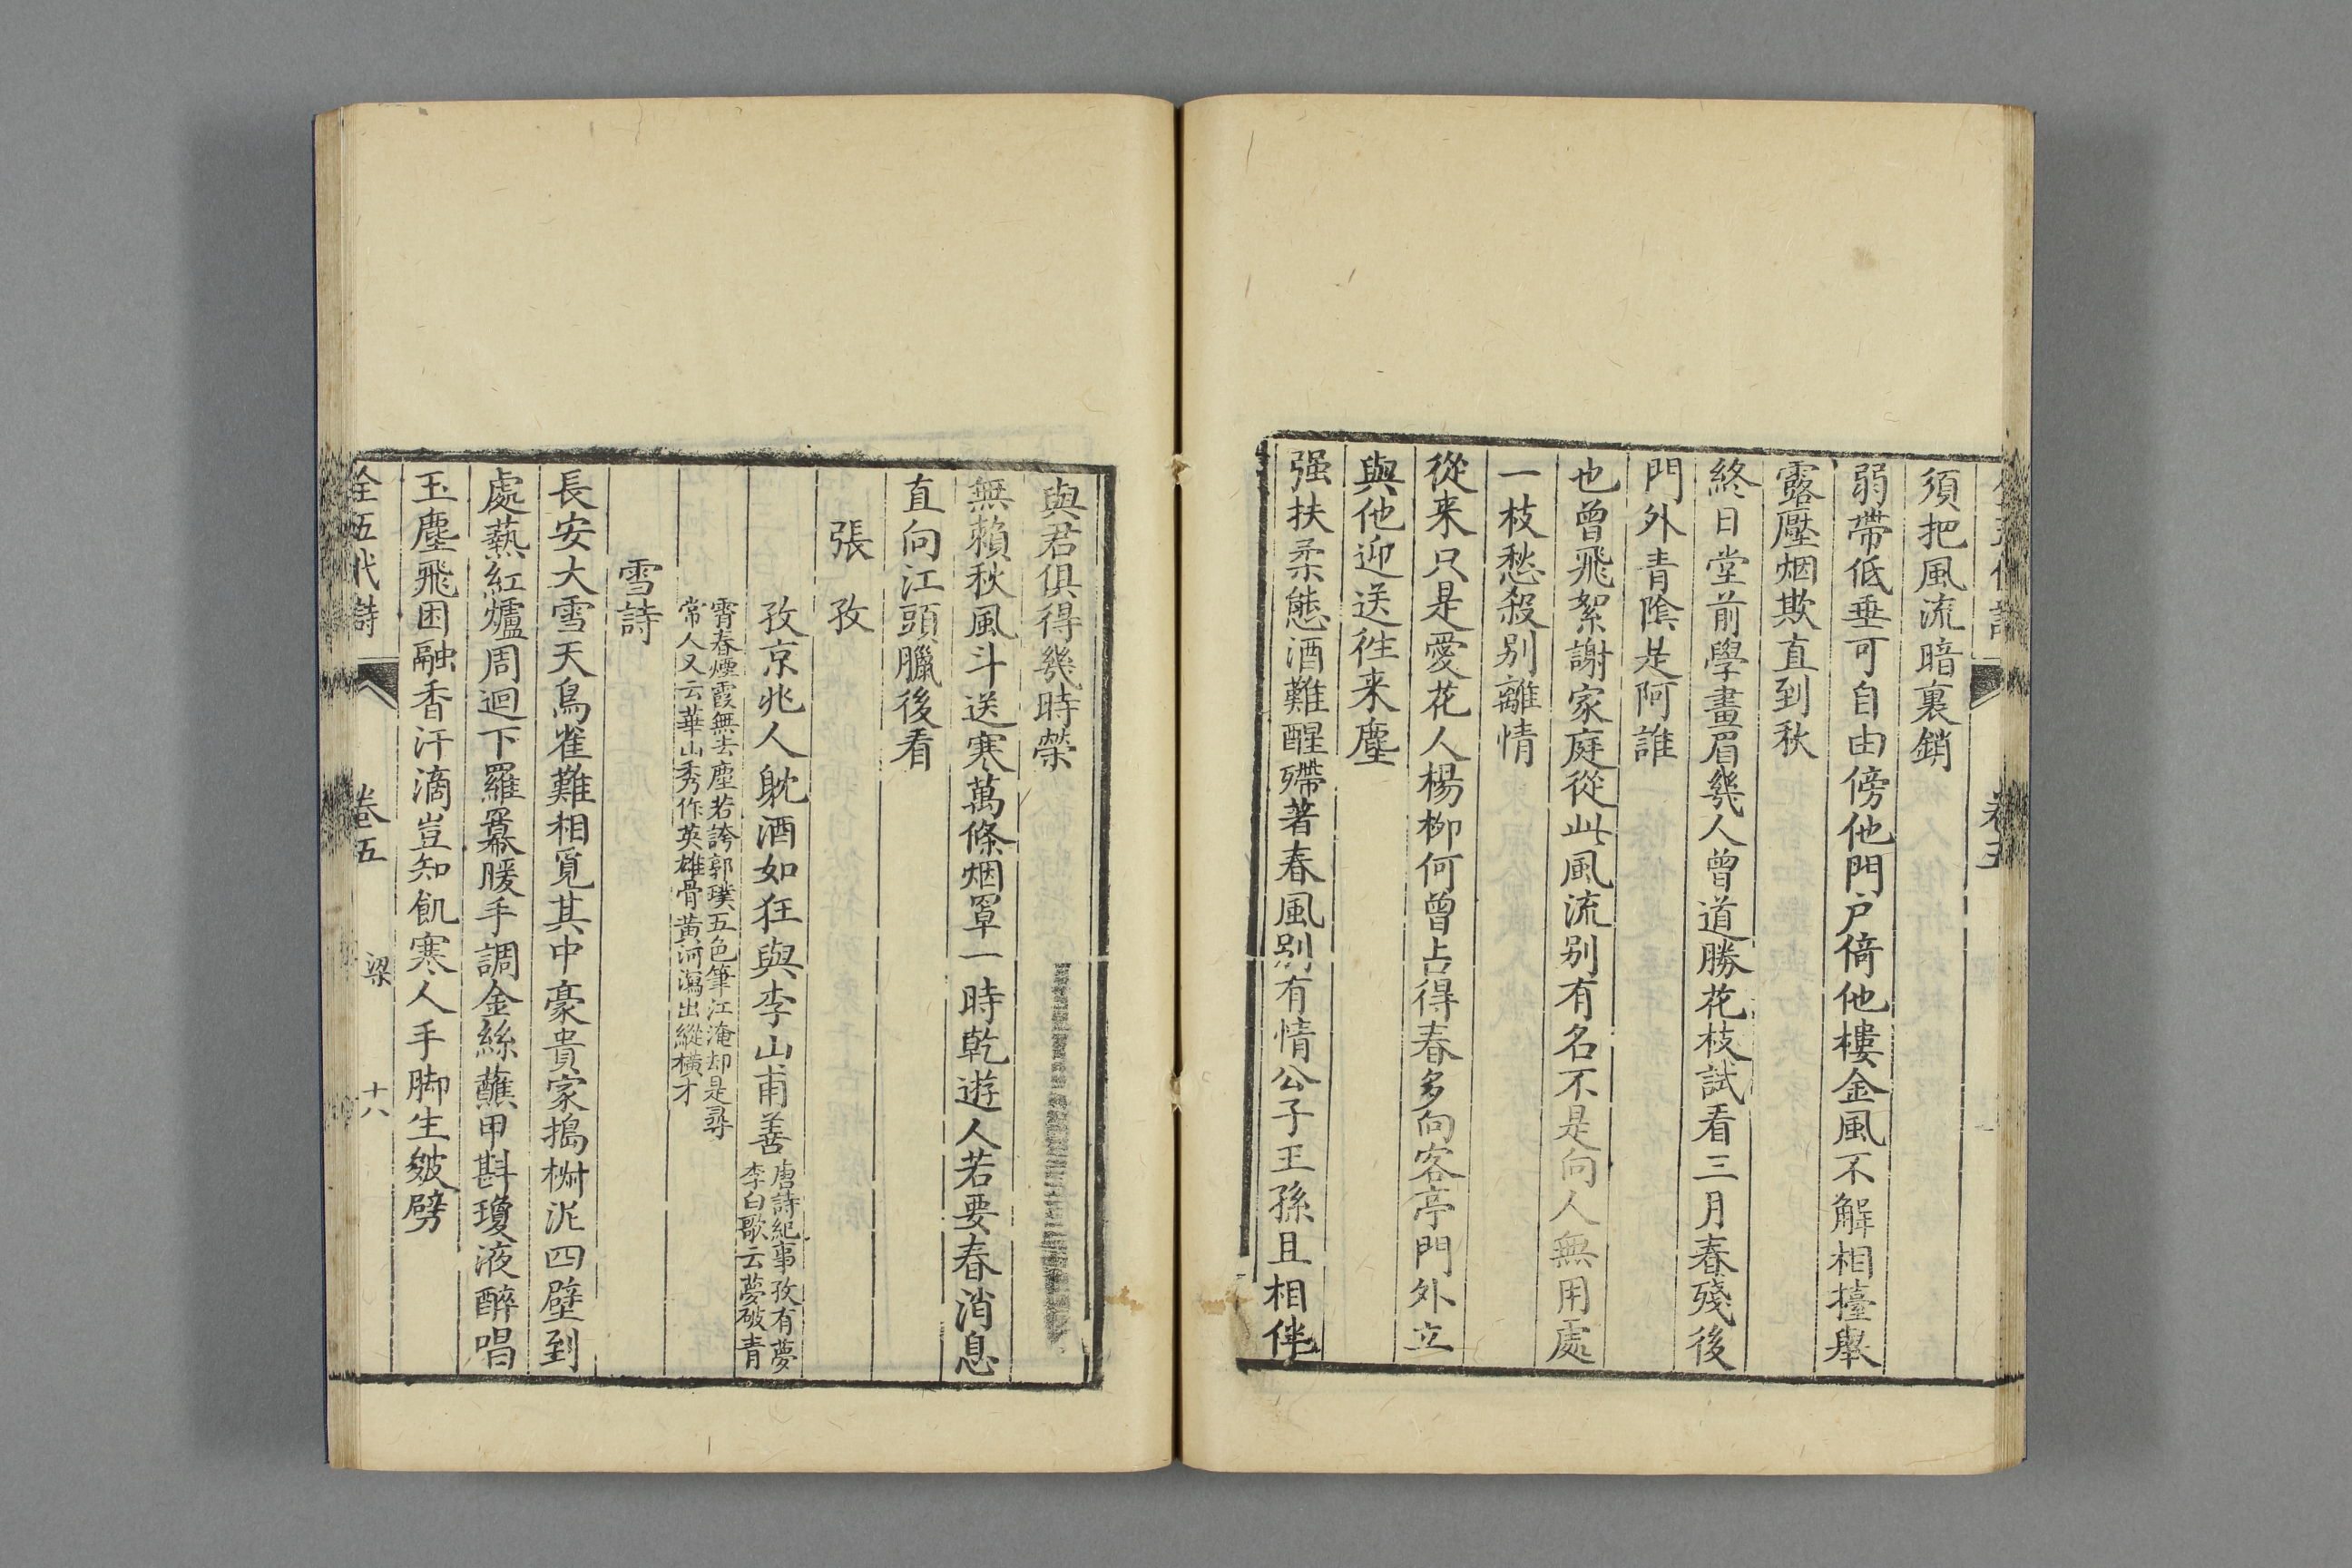 須把風流暗裏銷
弱帶低垂可自由傍他門戸倚他樓金風不解相擡舉
露壓烟欺直到秋
終日堂前學畫眉幾人曾道勝花枝試看三月春殘後
門外青陰是阿誰
也曾飛絮謝家庭從此風流别有名不是向人無用處
一枝愁殺别離情
從来只是愛花人楊柳何曾占得春多向客亭門外立
與他迎送徃来塵
强扶柔態酒難醒殢著春風别有情公子王孫且相伴
與君俱得幾時榮
無賴秋風斗送寒萬條烟罩一時乾遊人若要春消息
直向江頭臘後看
張孜
孜京兆人躭酒如狂與李山甫善唐詩紀事孜有夢
李白歌云夢破青
霄春煙霞無去塵若誇郭璞五色筆江淹却是尋
常人又云華山秀作英雄骨黄河瀉出縱横才
雪詩
長安大雪天鳥雀難相覓其中豪貴家搗椒泥四壁到
處爇紅爐周迴下羅羃暖手調金絲蘸甲斟瓊液醉唱
玉塵飛困融香汗滴豈知飢寒人手脚生皴劈
全五代詩 卷五 梁 十八